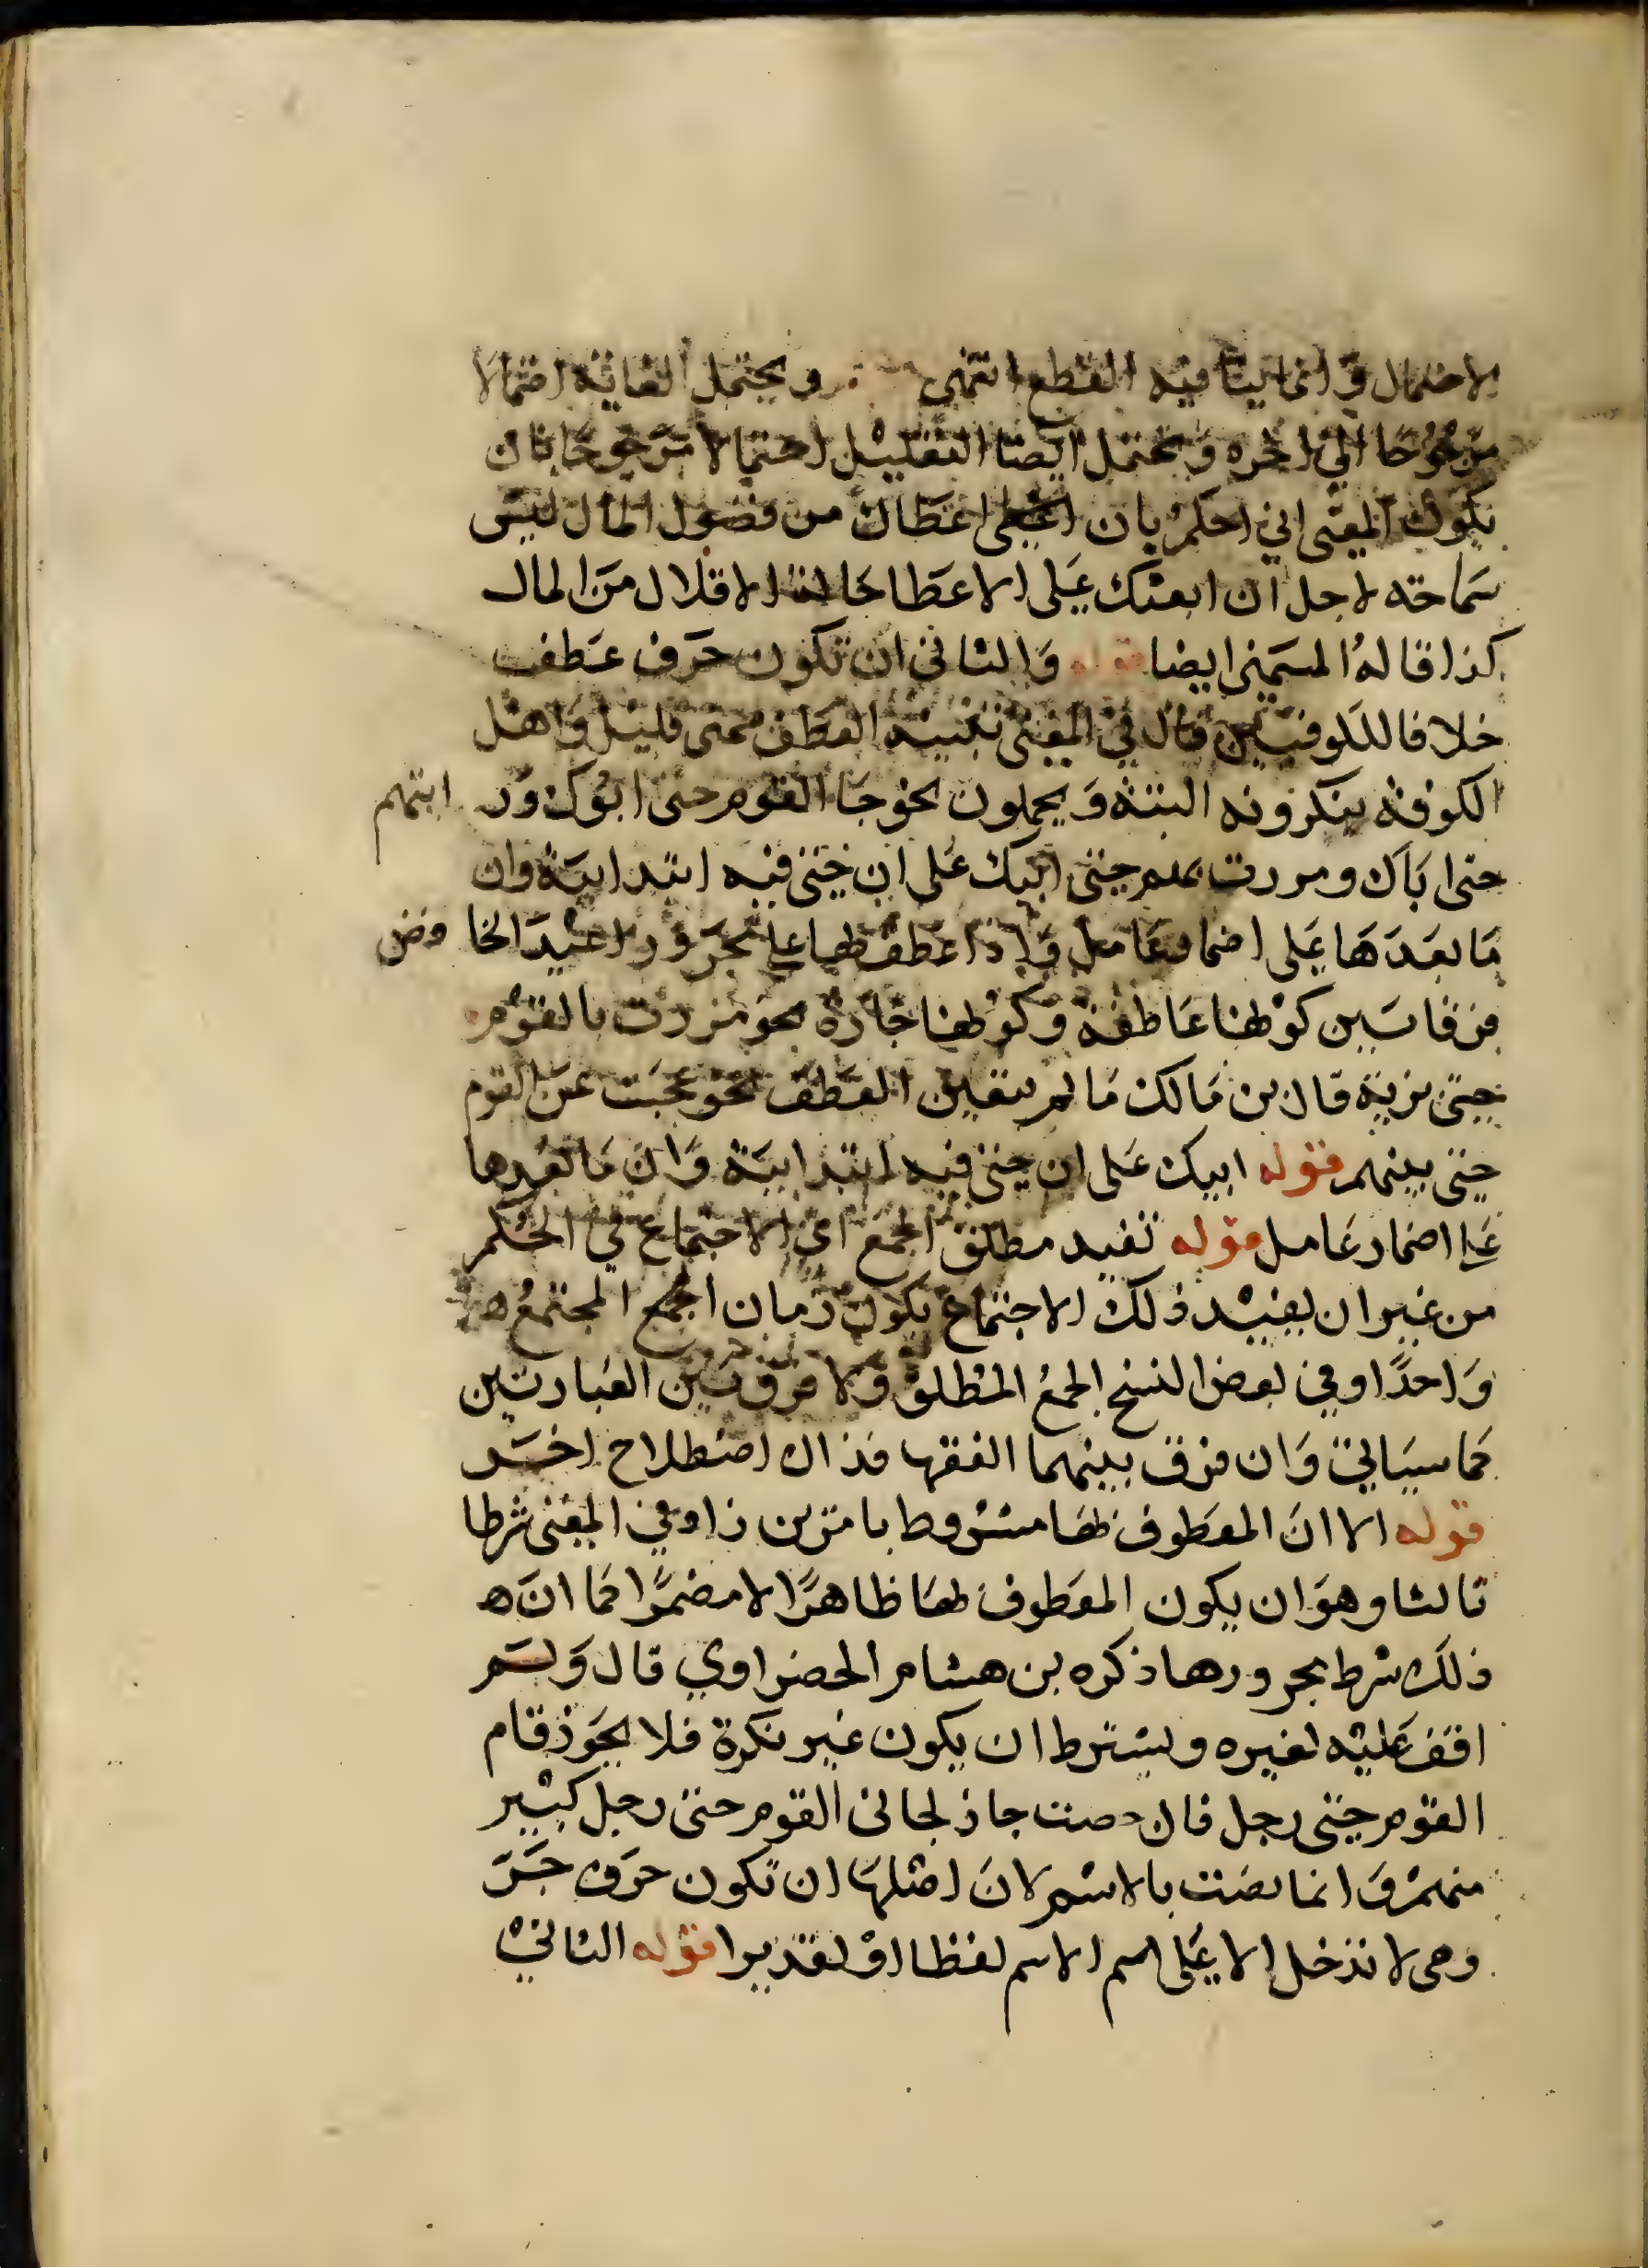 الاحتمال وانما ينافيه القطع انتهى ويحتمل الغايه احتمالا
مرجوحا الى اخره ويحتمل ايضا التقليل احتمالا مرجوحا بان
يكون المعنى اني احكم بان اعطا من فضول المال ليس
سماحته لاجل ان ابعثك على الاعطا حالة الاقلال من المال
كذا قاله الشمني ايضا قوله والثاني ان تكون حرف عطف
خلافا للكوفيين قال في المغني العطف بحتى قليل واهل
الكوفة ينكرونه البتة ويحملون نحو جا القوم حتى ابوك ورايتهم
حتى اباك ومررت بهم حتى ابيك على ان حتى فيه ابتدائية وان
ما بعدها على اضمار عامل واذا عطف بها على مجرور اعيد الخافض
فرقا بين كونها عاطفة وكونها جارة نحو مررت بالقوم
حتى بزيد قال بن مالك ما لم يتعين العطف نحو عجبت من القوم
حتى بينهم قوله ابيك على ان حتى فيه ابتدائية وان ما بعدها
على اضمار عامل قوله تفيد مطلق الجمع اي الاجتماع في الحكم
من غير ان يفيد ذلك الاجتماع بكون زمان الجمع المجتمع
واحدا وفي بعض النسخ الجمع المطلق ولا فرق بين العبارتين
كما سياتي وان فرق بينهما الفقها فذاك اصطلاح اخر
قوله الا ان المعطوف بها مشروط بامرين زاد في المغني شرطا
ثالثا وهو ان يكون المعطوف بها ظاهرا لا مضمرا كما ان
ذلك شرط مجرورها ذكره بن هشام الخضراوي قال ولم
اقف عليه لغيره ويشترط ان يكون غير نكرة فلا يجوز قام
القوم حتى رجل فان وصفت جاز نحو جاني القوم حتى رجل كبير
منهم وانما بالاسم لان اصلها ان تكون حرف جر
وهي لا تدخل الا على اسم الاسم لفظا او تقديرا قوله الثاني